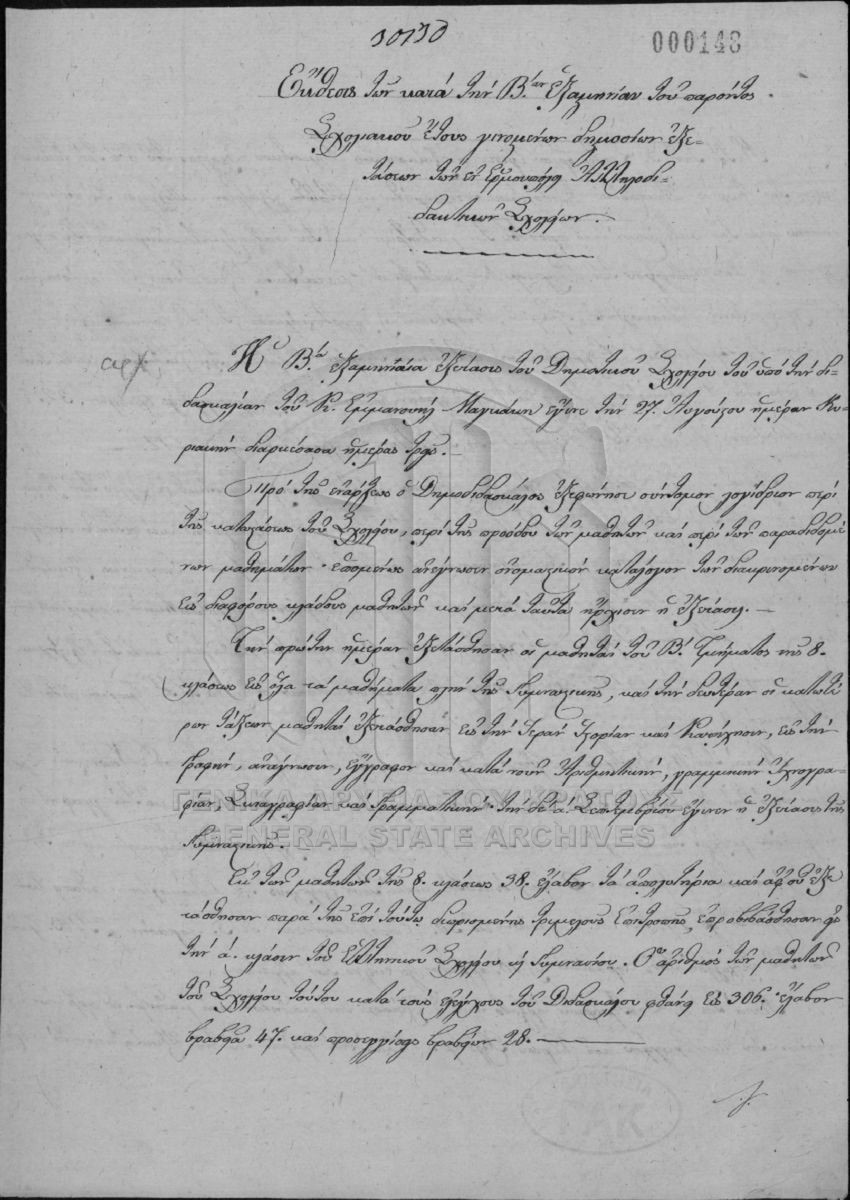 30130
000148
Ἔκθεσις τῶν κατὰ τὴν Β.αν ἑξαμηνίαν τοῦ παρόντος
Σχολιακοῦ ἔτους γινομένων δημοσίων ἐξε-
τάσεων τῶν ἐν Ἑρμουπόλῃ Ἀλληλοδι-
δακτικῶν Σχολείων.
Ἡ Β.α ἑξαμηνιαία ἐξέτασις τοῦ Δημοτικοῦ Σχολείου τοῦ ὑπὸ τὴν δι-
δασκαλίαν τοῦ Κ. Ἐμμανουὴλ Μαγκάκη ἔγινε τὴν 27. Αὐγούστου ἡμέραν Κυ-
ριακὴν διαρκέσασα ἡμέρας τρεῖς.
Πρὸ τῆς ἐνάρξεως ὁ Δημοδιδάσκαλος ἐξεφώνησε σύντομον λογίδριον περὶ
τῆς καταστάσεως τοῦ Σχολείου, περὶ τῆς προόδου τῶν μαθητῶν καὶ περὶ τῶν παραδιδομέ-
νων μαθημάτων· ἑπομένως ἀνέγνωσεν ὀνομαστικὸν κατάλογον τῶν διακρινομένων
εἰς διαφόρους κλάδους μαθητῶν καὶ μετὰ ταῦτα ἤρχισεν ἡ ἐξέτασις.
Τὴν πρώτην ἡμέραν ἐξετάσθησαν οἱ μαθηταὶ τοῦ Β. Τμήματος τῆς 8.
κλάσεως εἰς ὅλα τὰ μαθήματα πλὴν τῆς Γυμναστικῆς, καὶ τὴν δευτέραν οἱ κατωτέ
ρων τάξεων μαθηταὶ ἐξετάσθησαν εἰς τὴν Ἱερὰν Ἱστορίαν καὶ Κατήχησιν, εἰς τὴν
Γραφὴν, ἀνάγνωσιν, ἔγγραφον καὶ κατὰ νοῦν Ἀριθμητικὴν, γραμμικὴν Ἰχνογρα-
φίαν, Σκιαγραφίαν καὶ Γραμματικὴν· τὴν δὲ ά. Σεπτεμβρίου ἔγεινεν ἡ ἐξέτασις τῆς
Γυμναστικῆς.
Ἐκ τῶν μαθητῶν τῆς 8. κλάσεως 38. ἔλαβον τὰ ἀπολυτήρια καὶ ἀφ' οὗ ἐξε
τάσθησαν παρὰ τῆς ἐπὶ τούτῳ διωρισμένης τριμελοῦς Ἐπιτροπῆς, ἐπροβιβάσθησαν εἰς
τὴν ά. κλάσιν τοῦ Ἑλληνικοῦ Σχολείου ἢ Γυμνασίου. Ὁ ἀριθμὸς τῶν μαθητῶν
τοῦ Σχολείου τούτου κατὰ τοὺς ἐλέγχους τοῦ Διδασκάλου φθάνει εἰς 306. ἔλαβον
βραβεῖα 47. καὶ προσεγγίσεις βραβείων 28.
ΓΕΝΙΚΑ ΑΡΧΕΙΑ ΤΟΥ ΚΡΑΤΟΥΣ
GENERAL STATE ARCHIVES
ΓΑΚ